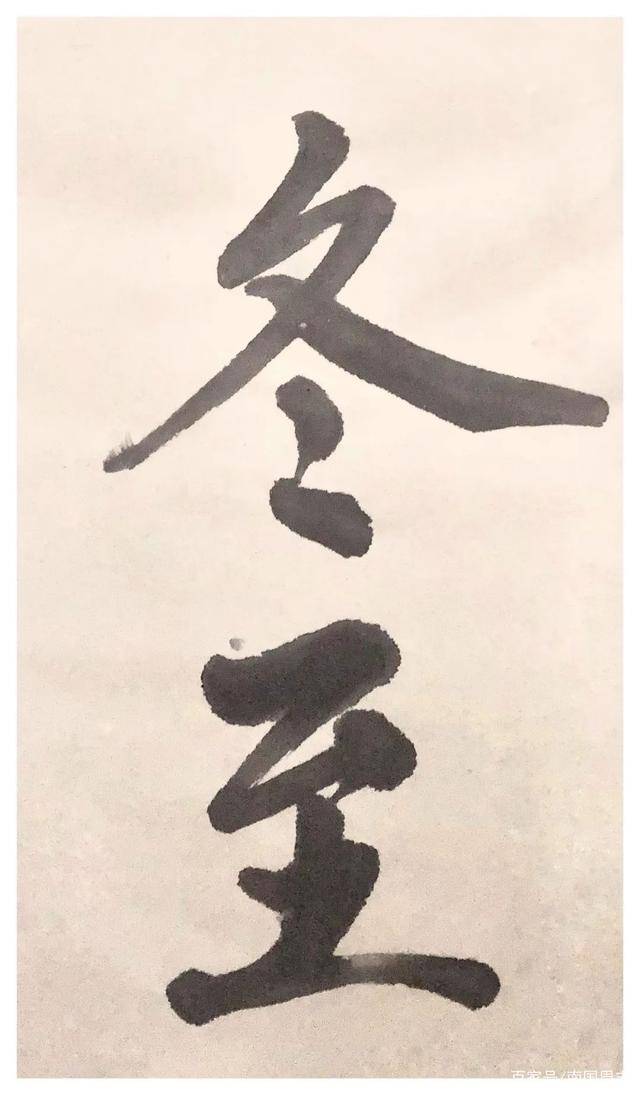 冬至
百家号/南国周